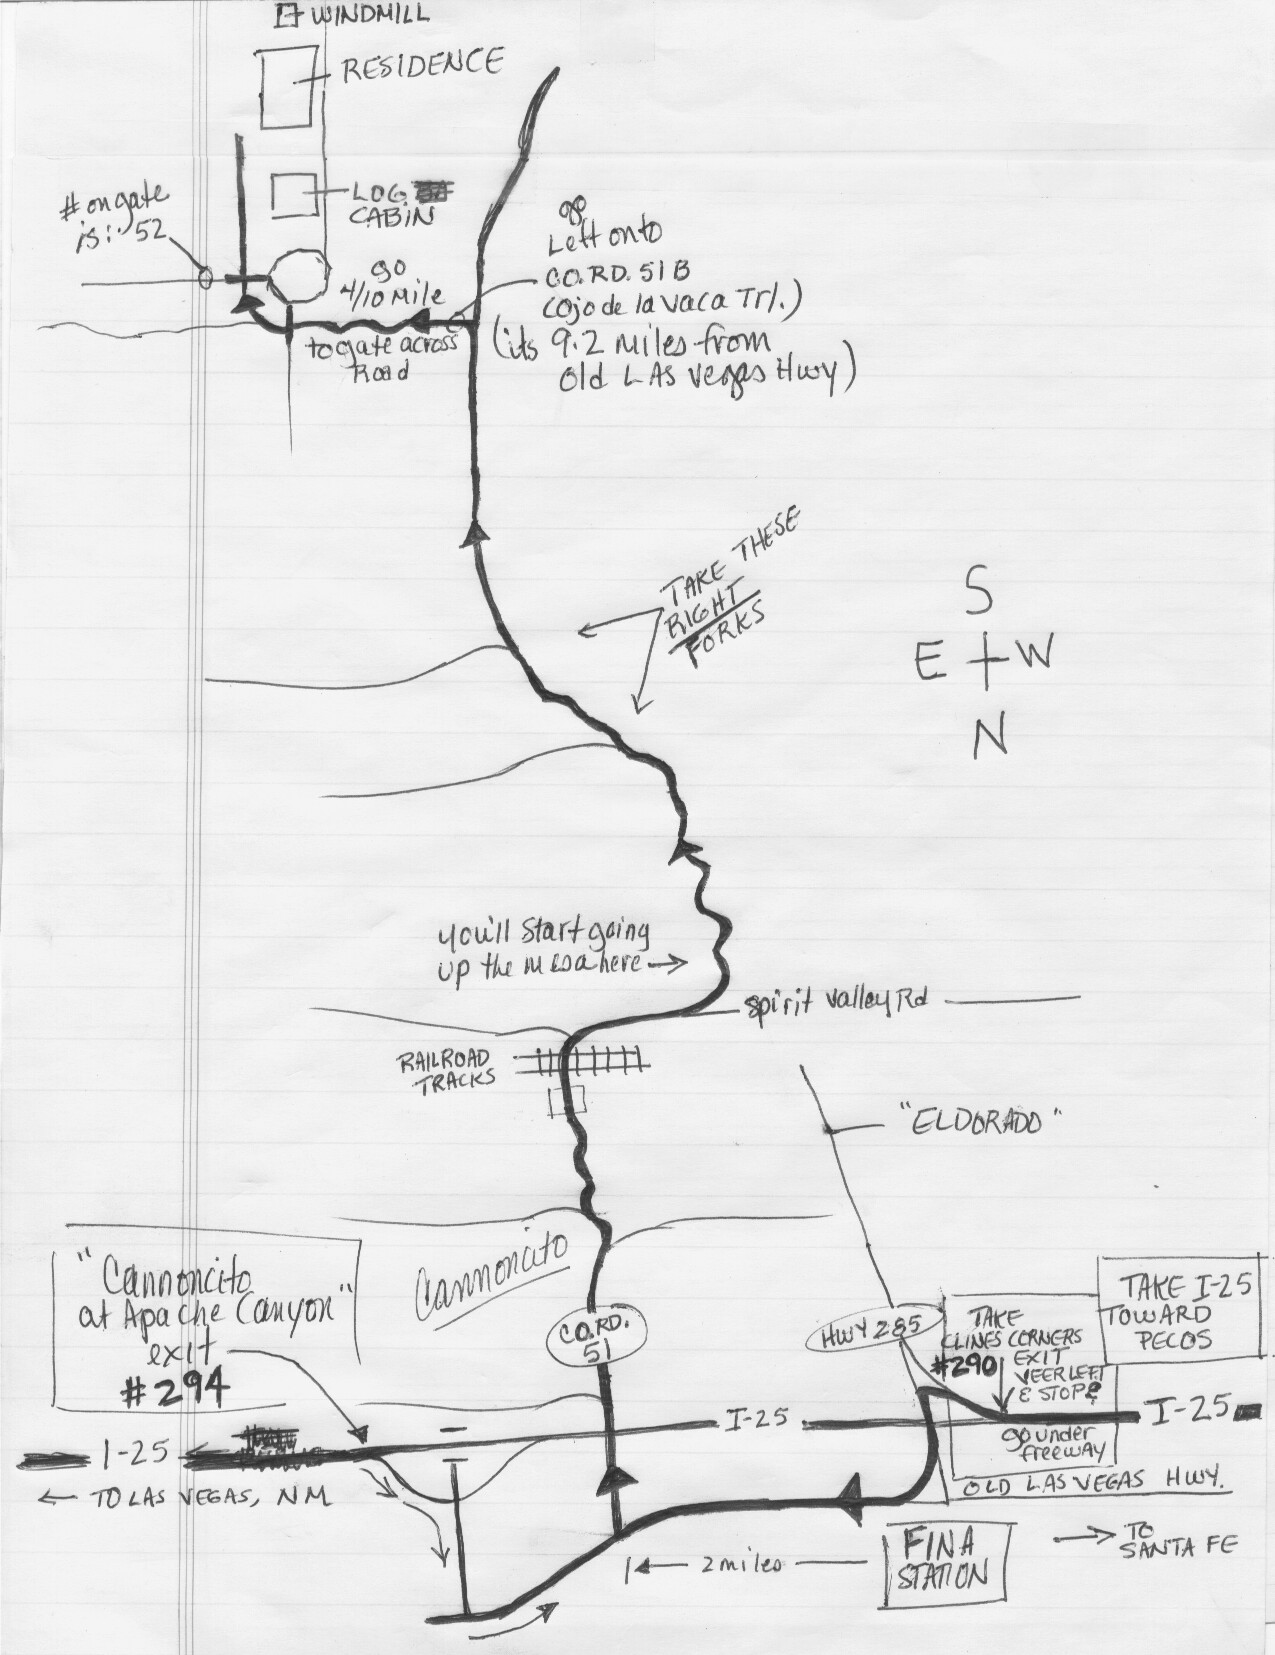 WINDMILL
RESIDENCE
LOG
CABIN
# on gate
is: 52
go
4/10 Mile
to gate across
Road
go
Left onto
CO. RD. 51 B
(Ojo de la Vaca Trl.)
(its 9.2 miles from
Old LAS Vegas Hwy)
TAKE THESE
RIGHT
FORKS
S
E W
N
you'll start going
up the mesa here →
spirit valley Rd
RAILROAD
TRACKS
"ELDORADO"
"Cannoncito
at Apache Canyon"
exit
#294
Cannoncito
CO. RD.
51
HWY 285
TAKE
CLINES CORNERS
#290 EXIT
VEER LEFT
& STOP &
go under
freeway
TAKE I-25
TOWARD
PECOS
I-25
I-25
I-25
← TO LAS VEGAS, NM
OLD LAS VEGAS HWY.
FINA
STATION
← 2 miles
→ TO
SANTA FE